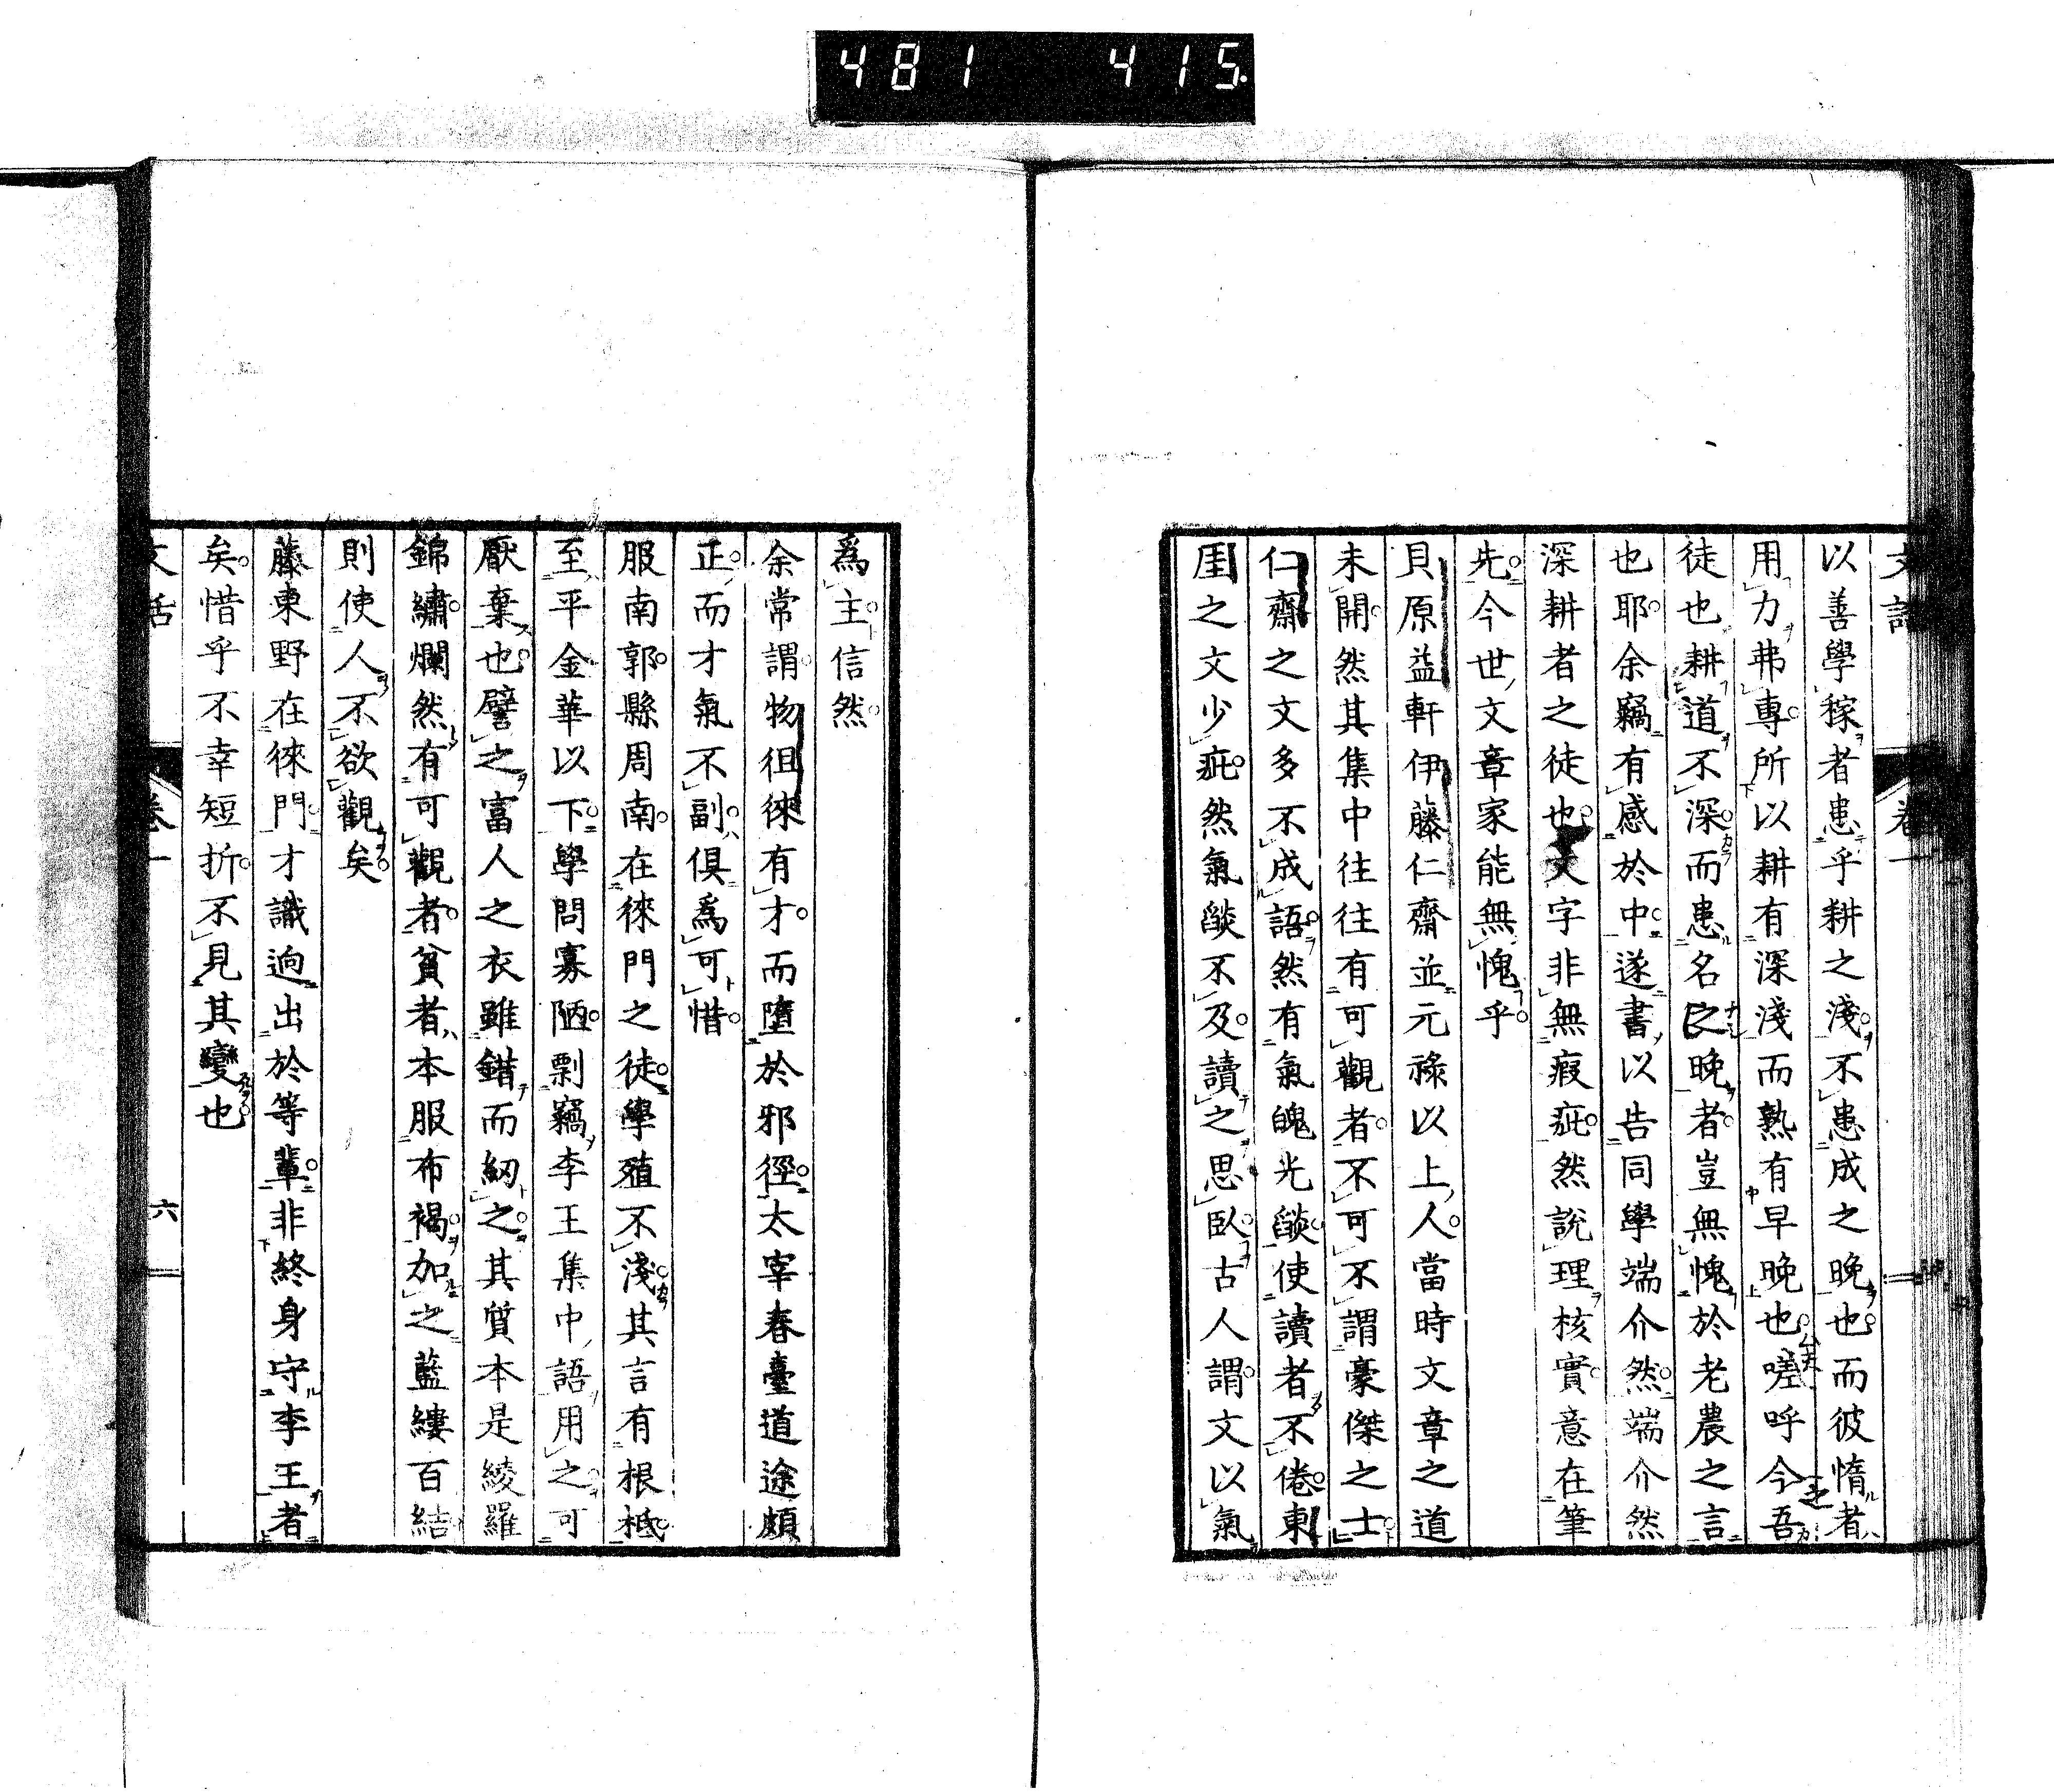 481 415
文話 卷一
以善學稼者患乎耕之淺不患成之晚也而彼惰者
用力弗專所以耕有深淺而熟有早晚也嗟呼今吾
徒也耕道不深而患名之晚者豈無愧於老農之言
也耶余竊有感於中遂書以告同學端介然端介然
深耕者之徒也文字非無瑕疵然說理核實意在筆
先今世文章家能無愧乎
貝原益軒伊藤仁齋並元祿以上人當時文章之道
未開然其集中往往有可觀者不可不謂豪傑之士
仁齋之文多不成語然有氣魄光燄使讀者不倦東
厓之文少疵然氣燄不及讀之思臥古人謂文以氣
爲主信然
余常謂物徂徠有才而墮於邪徑太宰春臺道途頗
正而才氣不副俱爲可惜
服南郭縣周南在徠門之徒學殖不淺其言有根柢
至平金華以下學問寡陋剽竊李王集中語用之可
厭棄也譬之富人之衣雖錯而紉之其質本是綾羅
錦繡爛然有可觀者貧者本服布褐加之藍縷百結
則使人不欲觀矣
藤東野在徠門才識逈出於等輩非終身守李王者
矣惜乎不幸短折不見其變也
文話 卷一 六